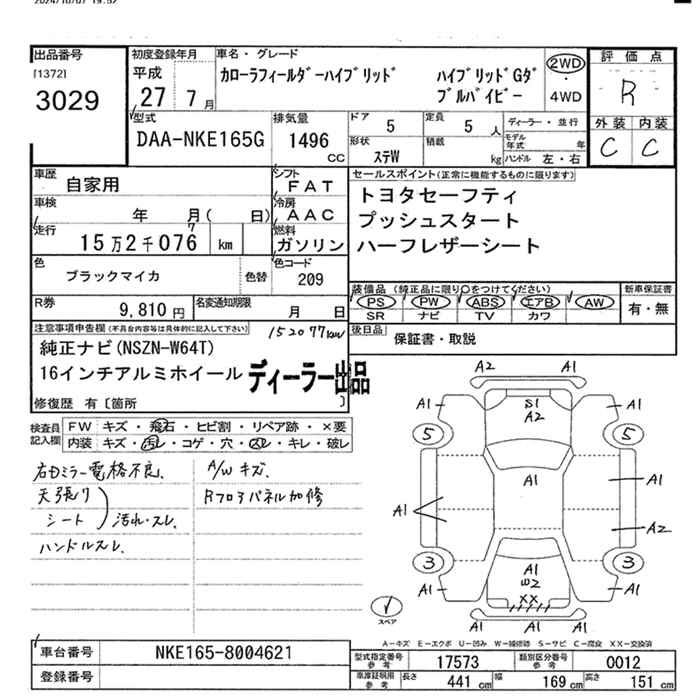 2024/10/07 19:52
出品番号
[1372]
3029
初度登録年月
平成
27 7 月
車名・グレード
カローラフィールダーハイブリッド ハイブリッドGダ
ブルバイビー
2WD
・
4WD
評価点
R
外装 内装
C C
型式
DAA-NKE165G
排気量
1496
CC
ドア 5
定員 5 人
形状 ステW
積載 kg
ディーラー・並行
モデル年式 年
ハンドル 左・右
車歴 自家用
車検 年 月( 日)
走行 15万2千076 km
7
シフト FAT
冷房 AAC
燃料 ガソリン
色 ブラックマイカ 色替
色コード 209
R券 9,810 円
名変通知期限 月 日
セールスポイント(正常に機能するものに限ります)
トヨタセーフティ
プッシュスタート
ハーフレザーシート
装備品 (純正品に限り○をつけてください)
PS PW ABS エアB AW
SR ナビ TV カワ
新車保証書
有・無
後日品 保証書・取説
注意事項申告欄(不具合内容等は具体的に記入して下さい)
152077km
純正ナビ(NSZN-W64T)
16インチアルミホイール
ディーラー出品
修復歴 有〔箇所 〕
検査員記入欄
FW キズ・飛石・ヒビ割・リペア跡・×要
内装 キズ・汚レ・コゲ・穴・スレ・キレ・破レ
右ドミラー電格不良.
天張り
シート 汚れ・スレ
ハンドルスレ.
A/W キズ.
Rフロアパネル加修
A2
A1 S1 A1
A2
5 5
A1 A1
A1
A2
3 3
A1 A1 A1
W2
XX
A1 A1
スペア
A-キズ E-エクボ U-凹み W-補修跡 S-サビ C-腐食 XX-交換済
車台番号 NKE165-8004621
登録番号
型式指定番号 参考 17573
類別区分番号 参考 0012
車庫証明用 参考 長さ 441 cm 幅 169 cm 高さ 151 cm